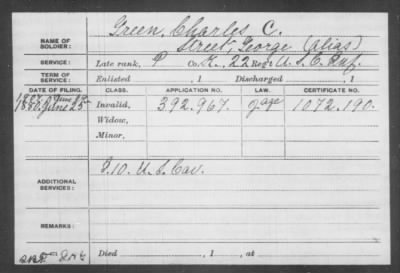 NAME OF SOLDIER: Green, Charles C.
Street, George (alias)
SERVICE: Late rank, P Co. K, 22 Reg't U. S. C. Inf.
TERM OF SERVICE: Enlisted , 1 Discharged , 1
DATE OF FILING. CLASS. APPLICATION NO. LAW. CERTIFICATE NO.
1880 June 25 Invalid, 392.967. 1072.190.
Widow,
Minor,
ADDITIONAL SERVICES: I. 10. U. S. Cav.
REMARKS:
Died , 1 , at